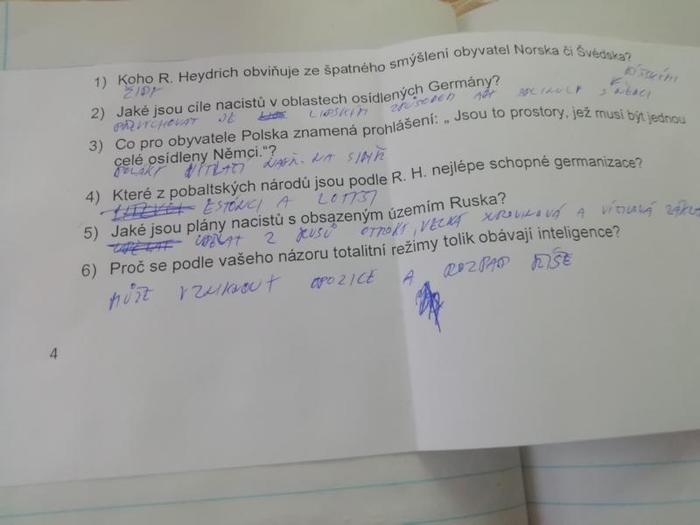 1) Koho R. Heydrich obviňuje ze špatného smýšlení obyvatel Norska či Švédska?
ŽIDY
2) Jaké jsou cíle nacistů v oblastech osídlených Germány?
PŘEVYCHOVAT JE LIDSKÝM ZPŮSOBEM ABY K ŘÍŠSKÝM
3) Co pro obyvatele Polska znamená prohlášení: „ Jsou to prostory, jež musí být jednou
celé osídleny Němci.“?
POLÁKY NAPŘ. NA SIBIŘ
4) Které z pobaltských národů jsou podle R. H. nejlépe schopné germanizace?
ESTONCI A LOTYŠI
5) Jaké jsou plány nacistů s obsazeným územím Ruska?
UDĚLAT Z RUSŮ OTROKY, VELKÁ SUROVINOVÁ A
6) Proč se podle vašeho názoru totalitní režimy tolik obávají inteligence?
MŮŽE VZNIKNOUT OPOZICE A ROZPAD ŘÍŠE
4